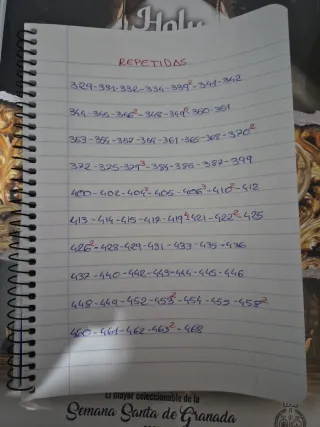 Holy
REPETIDAS
329-331-332-334-339²-341-342
344-345-346²-348-349²-350-351
353-354-357-358-361-365-368-370²
372-375-379³-384-385-387-399
400-402-404²-405-406³-410²-412
413-414-415-417-419⁴-421-422²-425
426²-428-429-431-433-435-436
437-440-442-443-444-445-446
448-449-452-453²-454-455-458²
460-461-462-463²-468
El mayor coleccionable de la
Semana Santa de Granada